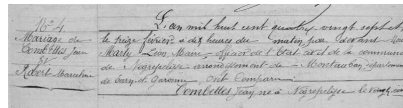 N° 4
Mariage de
Combelles Jean
et
L'an mil huit cent quatre vingt sept et
le seize février à dix heures du matin, par devant nous
Marty Léon, Maire officier de l'État civil de la commune
de Nègrepelisse arrondissement de Montauban, département
de Tarn-et-Garonne, ont comparu:
Combelles Jean, né à Nègrepelisse le